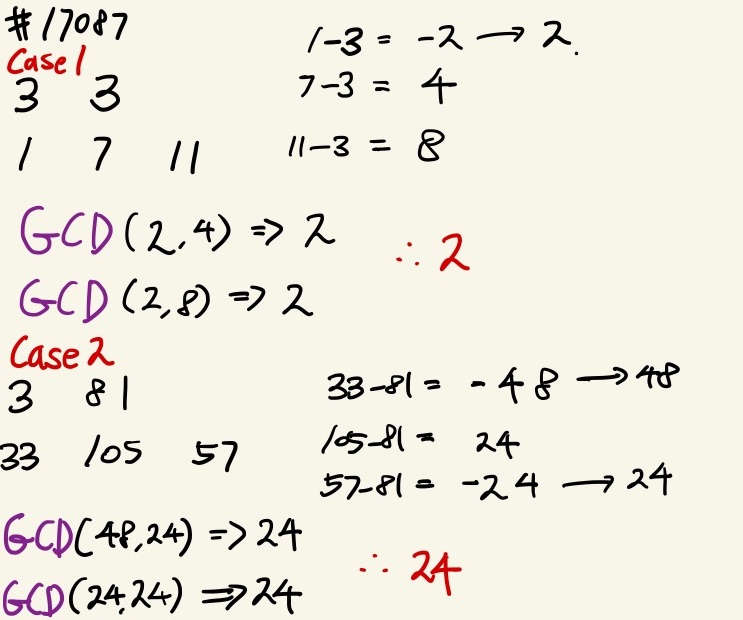 #17087
Case 1
3 3
1 7 11
1-3 = -2 → 2.
7-3 = 4
11-3 = 8
GCD(2,4) => 2
GCD(2,8) => 2
∴ 2
Case 2
3 81
33 105 57
33-81 = -48 → 48
105-81 = 24
57-81 = -24 → 24
GCD(48,24) => 24
GCD(24,24) => 24
∴ 24